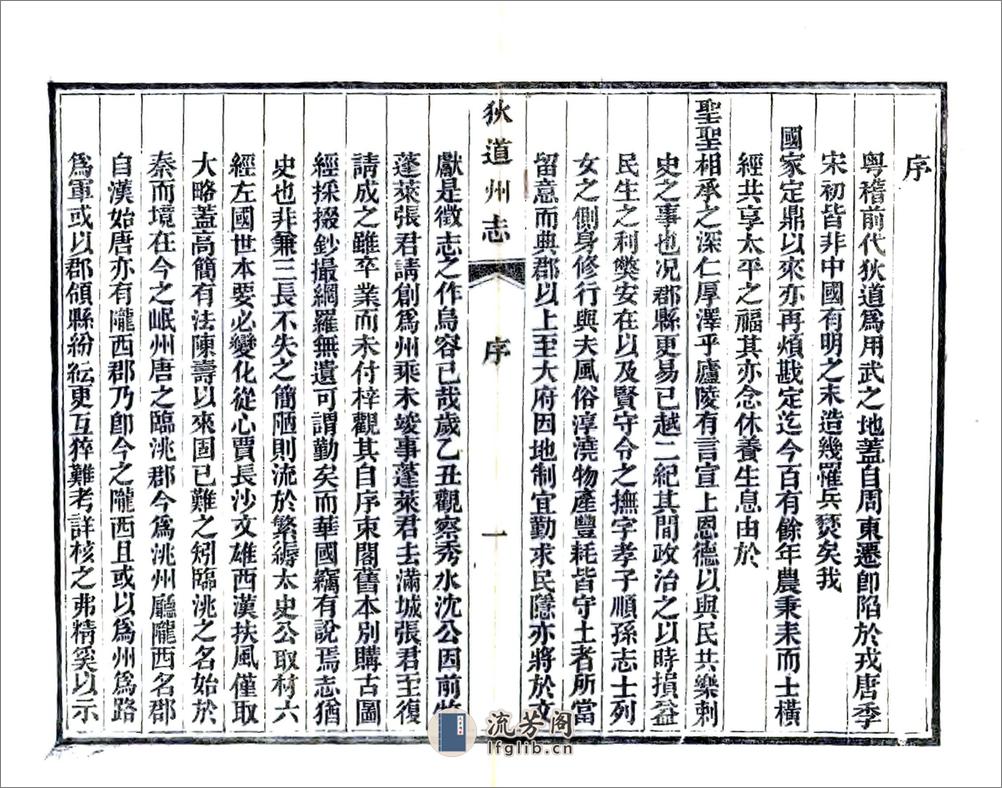 序
粤稽前代狄道爲用武之地蓋自周東遷卽陷於戎唐季
宋初皆非中國有明之末造幾罹兵燹矣我
國家定鼎以來亦再煩戡定迄今百有餘年農秉耒而士橫
經共享太平之福其亦念休養生息由於
聖聖相承之深仁厚澤乎廬陵有言宣上恩德以與民共樂刺
史之事也况郡縣更易已越二紀其間政治之以時損益
民生之利弊安在以及賢守令之撫字孝子順孫志士列
女之側身修行與夫風俗淳澆物產豐耗皆守土者所當
留意而典郡以上至大府因地制宜勤求民隱亦將於文
狄道州志
序
一
獻是徵志之作烏容已哉歲乙丑觀察秀水沈公因前牧
蓬萊張君請創爲州乘未竣事蓬萊君去滿城張君至復
請成之雖卒業而未付梓觀其自序東閣舊本別購古圖
經採掇鈔撮網羅無遺可謂勤矣而華國竊有說焉志猶
史也非兼三長不失之簡陋則流於繁縟太史公取材六
經左國世本要必變化從心賈長沙文雄西漢扶風僅取
大略蓋高簡有法陳壽以來固已難之矧臨洮之名始於
秦而境在今之岷州唐之臨洮郡今爲洮州廳隴西名郡
自漢始唐亦有隴西郡乃卽今之隴西且或以爲州爲路
爲軍或以郡領縣紛紜更互猝難考詳核之弗精奚以示
流芳阁
lfglib.cn